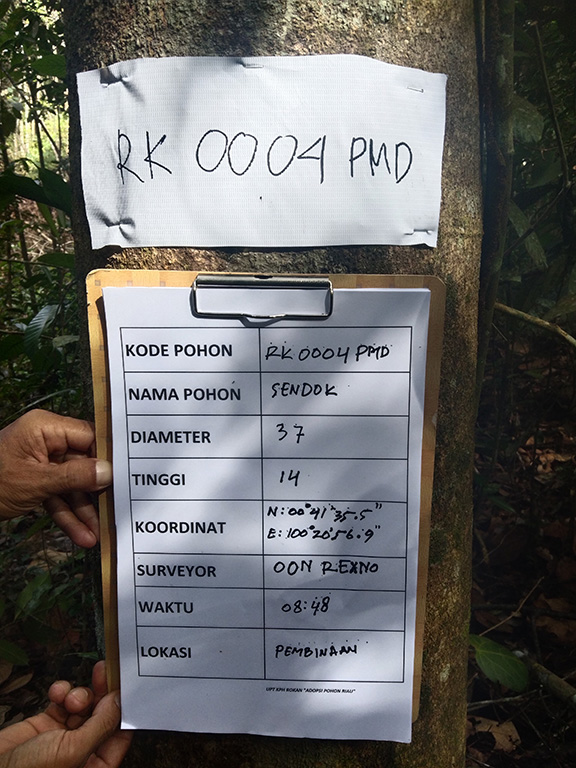 RK 0004 PMD
KODE POHON RK 0004 PMD
NAMA POHON SENDOK
DIAMETER 37
TINGGI 14
KOORDINAT N: 00°41'35.5"
E: 100°20'56.9"
SURVEYOR OON REXNO
WAKTU 08:48
LOKASI PEMBINAAN
UPT KPH ROKAN "ADOPSI POHON RIAU"